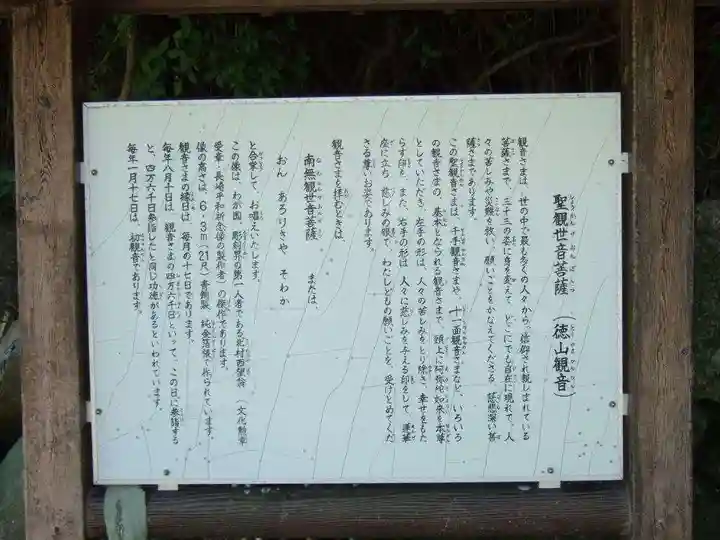 聖観世音菩薩 (徳山観音)
観音さまは、世の中で最も多くの人々から、信仰され親しまれている
菩薩さまで、三十三の姿に身を変えて、どこにでも自在に現れて、人
々の苦しみや災難を救い、願いごとをかなえてくださる、慈悲深い菩
薩さまであります。
この聖観音さまは、千手観音さまや、十一面観音さまなど、いろいろ
の観音さまの、基本となられる観音さまで、頭上に阿弥陀如来を本尊
としていただき、左手の形は、人々の苦しみをとり除き、幸せをもた
らす印を、また、右手の形は、人々に慈しみを与える印をして、蓮華
座に立ち、慈しみの眼で、わたしどもの願いごとを、受けとめてくだ
さる尊いお姿であります。
観音さまを拝むときは、
南無観世音菩薩 または、
おん あろりきや そわか
と合掌して、お唱えいたします。
この像は、わが国、彫刻界の第一人者である北村西望翁 (文化勲章
受章・長崎平和祈念像の製作者)の傑作であります。
像の高さは、6.3m(21尺)青銅製、純金箔張で作られています。
観音さまの縁日は、毎月の十七日であります。
毎年八月十日は、観音さまの四万六千日といって、この日に参詣する
と、四万六千日参詣したと同じ功徳があるといわれています。
毎年一月十七日は、初観音であります。